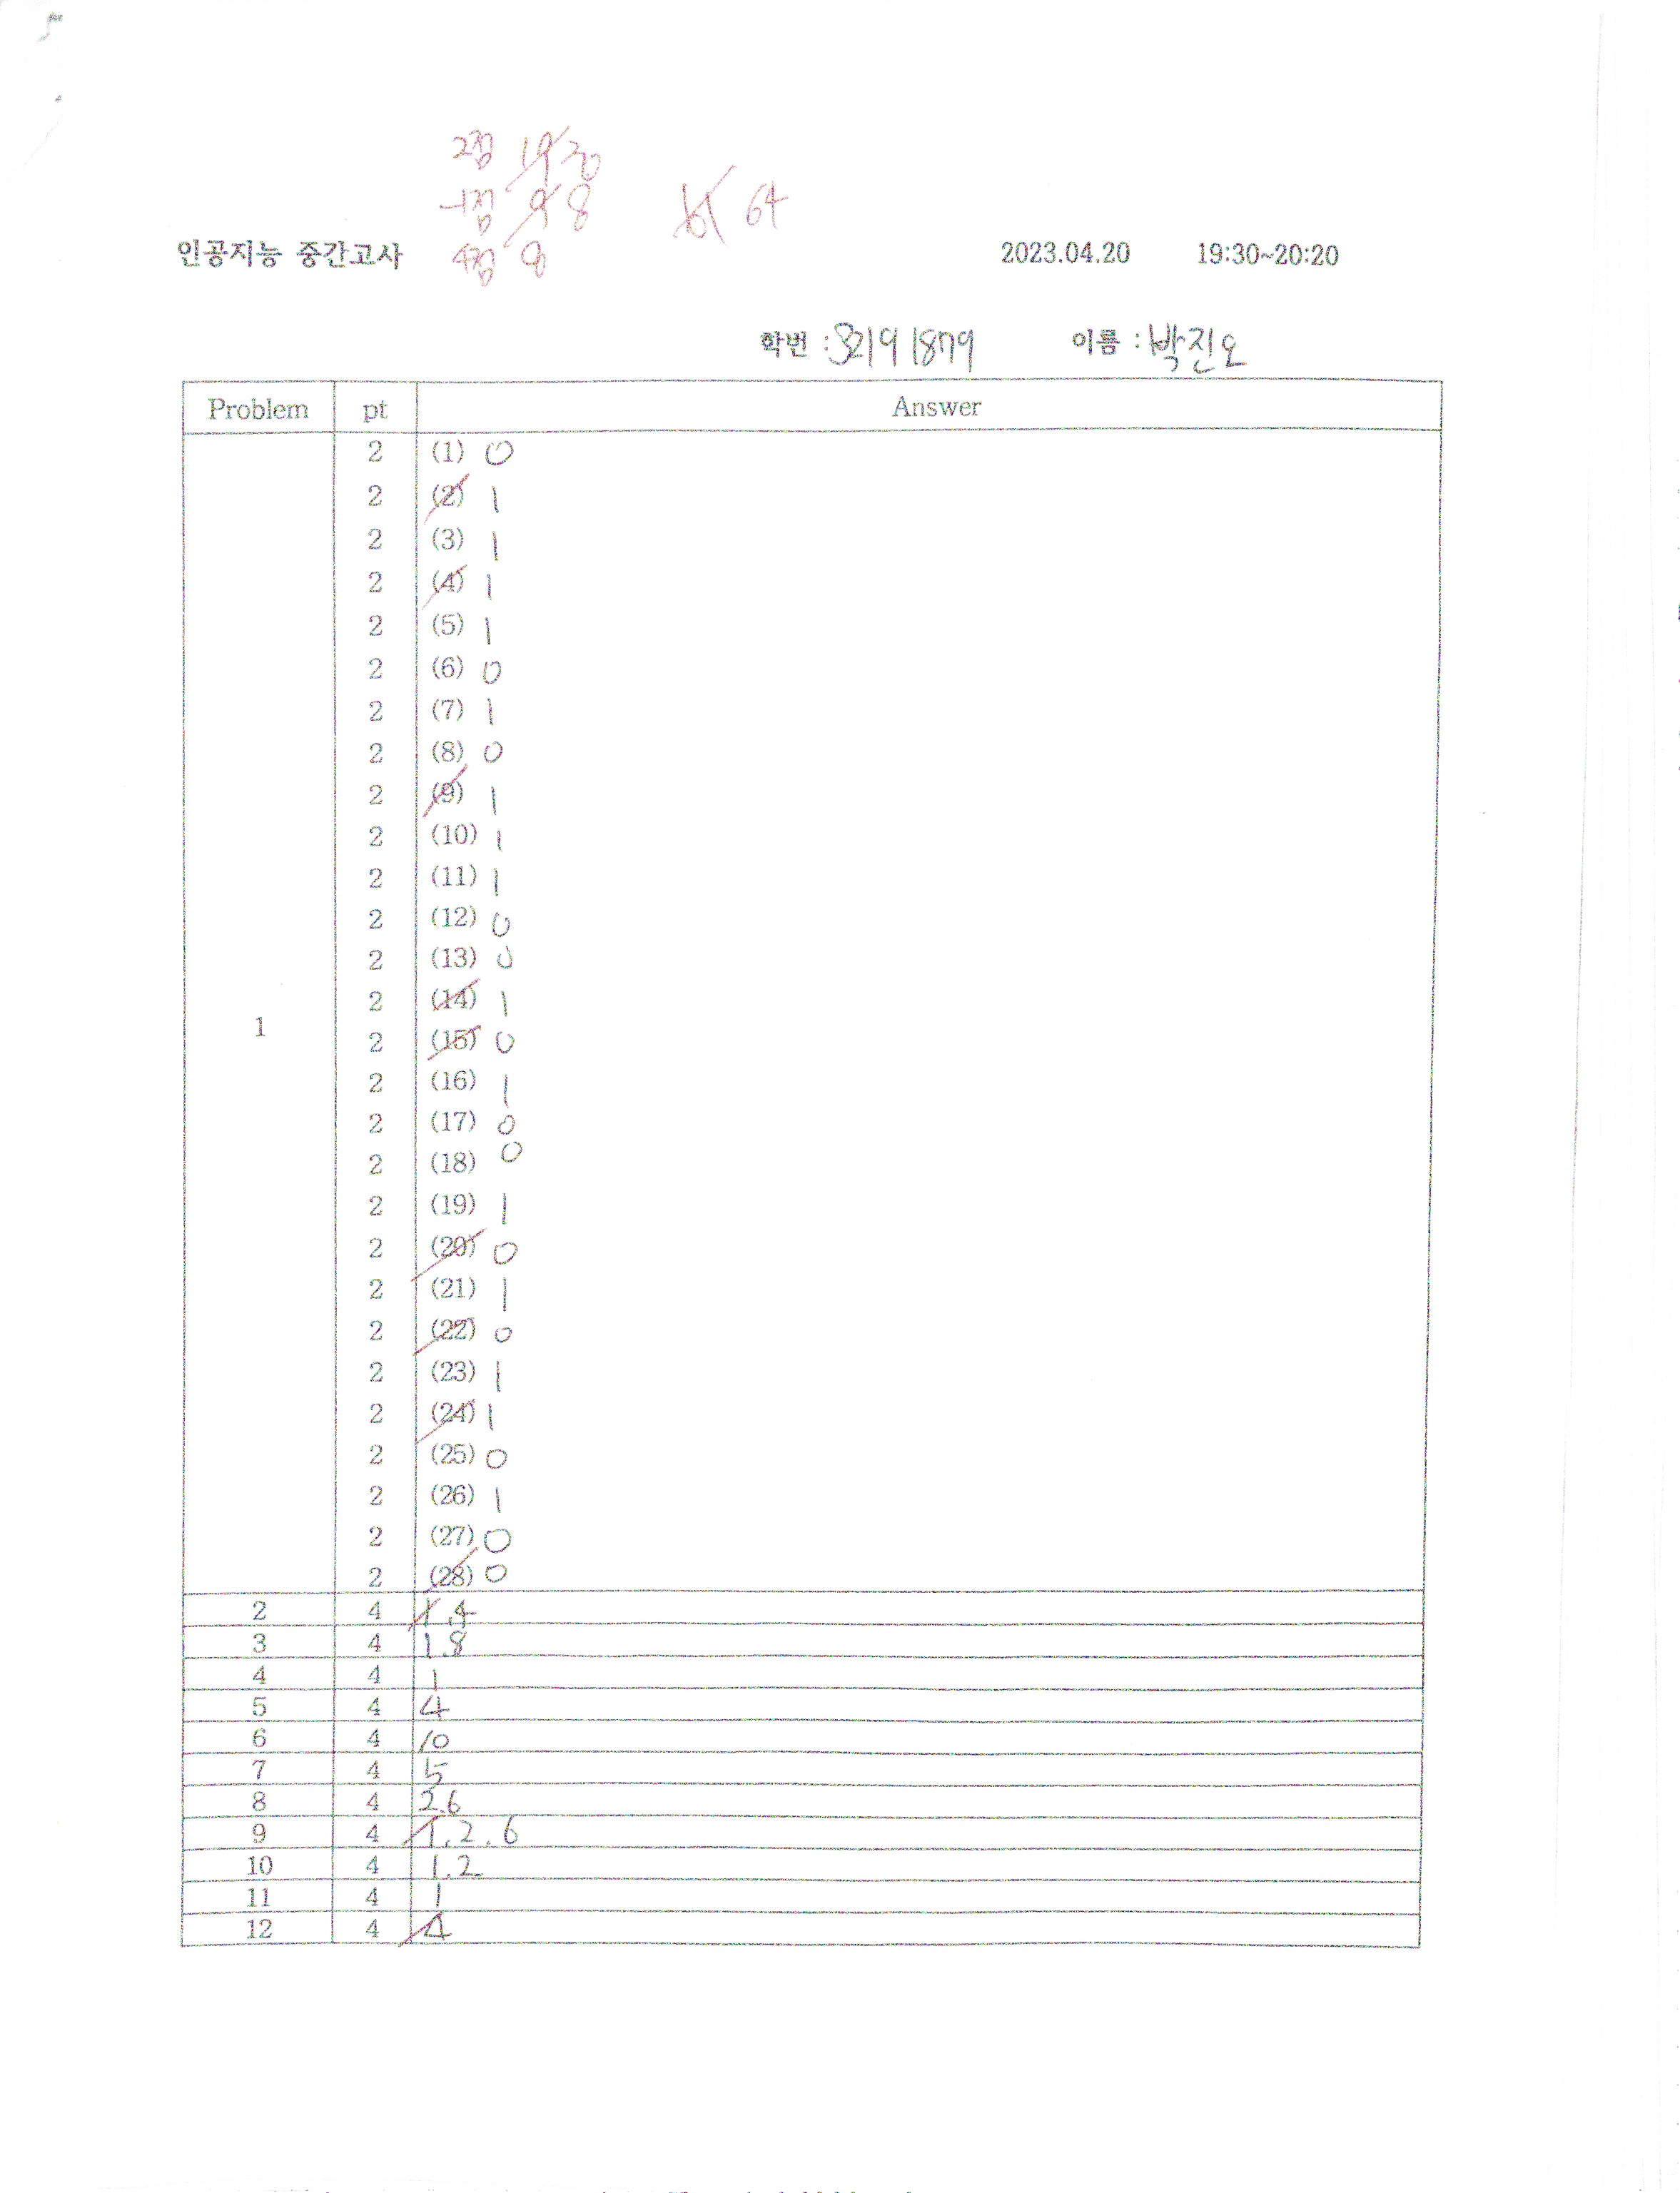 2점 19 20
-1점 9 8 61 64
4점 8
인공지능 중간고사 2023.04.20 19:30~20:20
학번 : 32191879 이름 : 박진오
Problem pt Answer
2 (1) 0
2 (2) 1
2 (3) 1
2 (4) 1
2 (5) 1
2 (6) 0
2 (7) 1
2 (8) 0
2 (9) 1
2 (10) 1
2 (11) 1
2 (12) 0
2 (13) 0
2 (14) 1
1 2 (15) 0
2 (16) 1
2 (17) 0
2 (18) 0
2 (19) 1
2 (20) 0
2 (21) 1
2 (22) 0
2 (23) 1
2 (24) 1
2 (25) 0
2 (26) 1
2 (27) 0
2 (28) 0
2 4 1.4
3 4 1.8
4 4 1
5 4 4
6 4 10
7 4 5
8 4 2.6
9 4 1.2.6
10 4 1.2
11 4 1
12 4 4